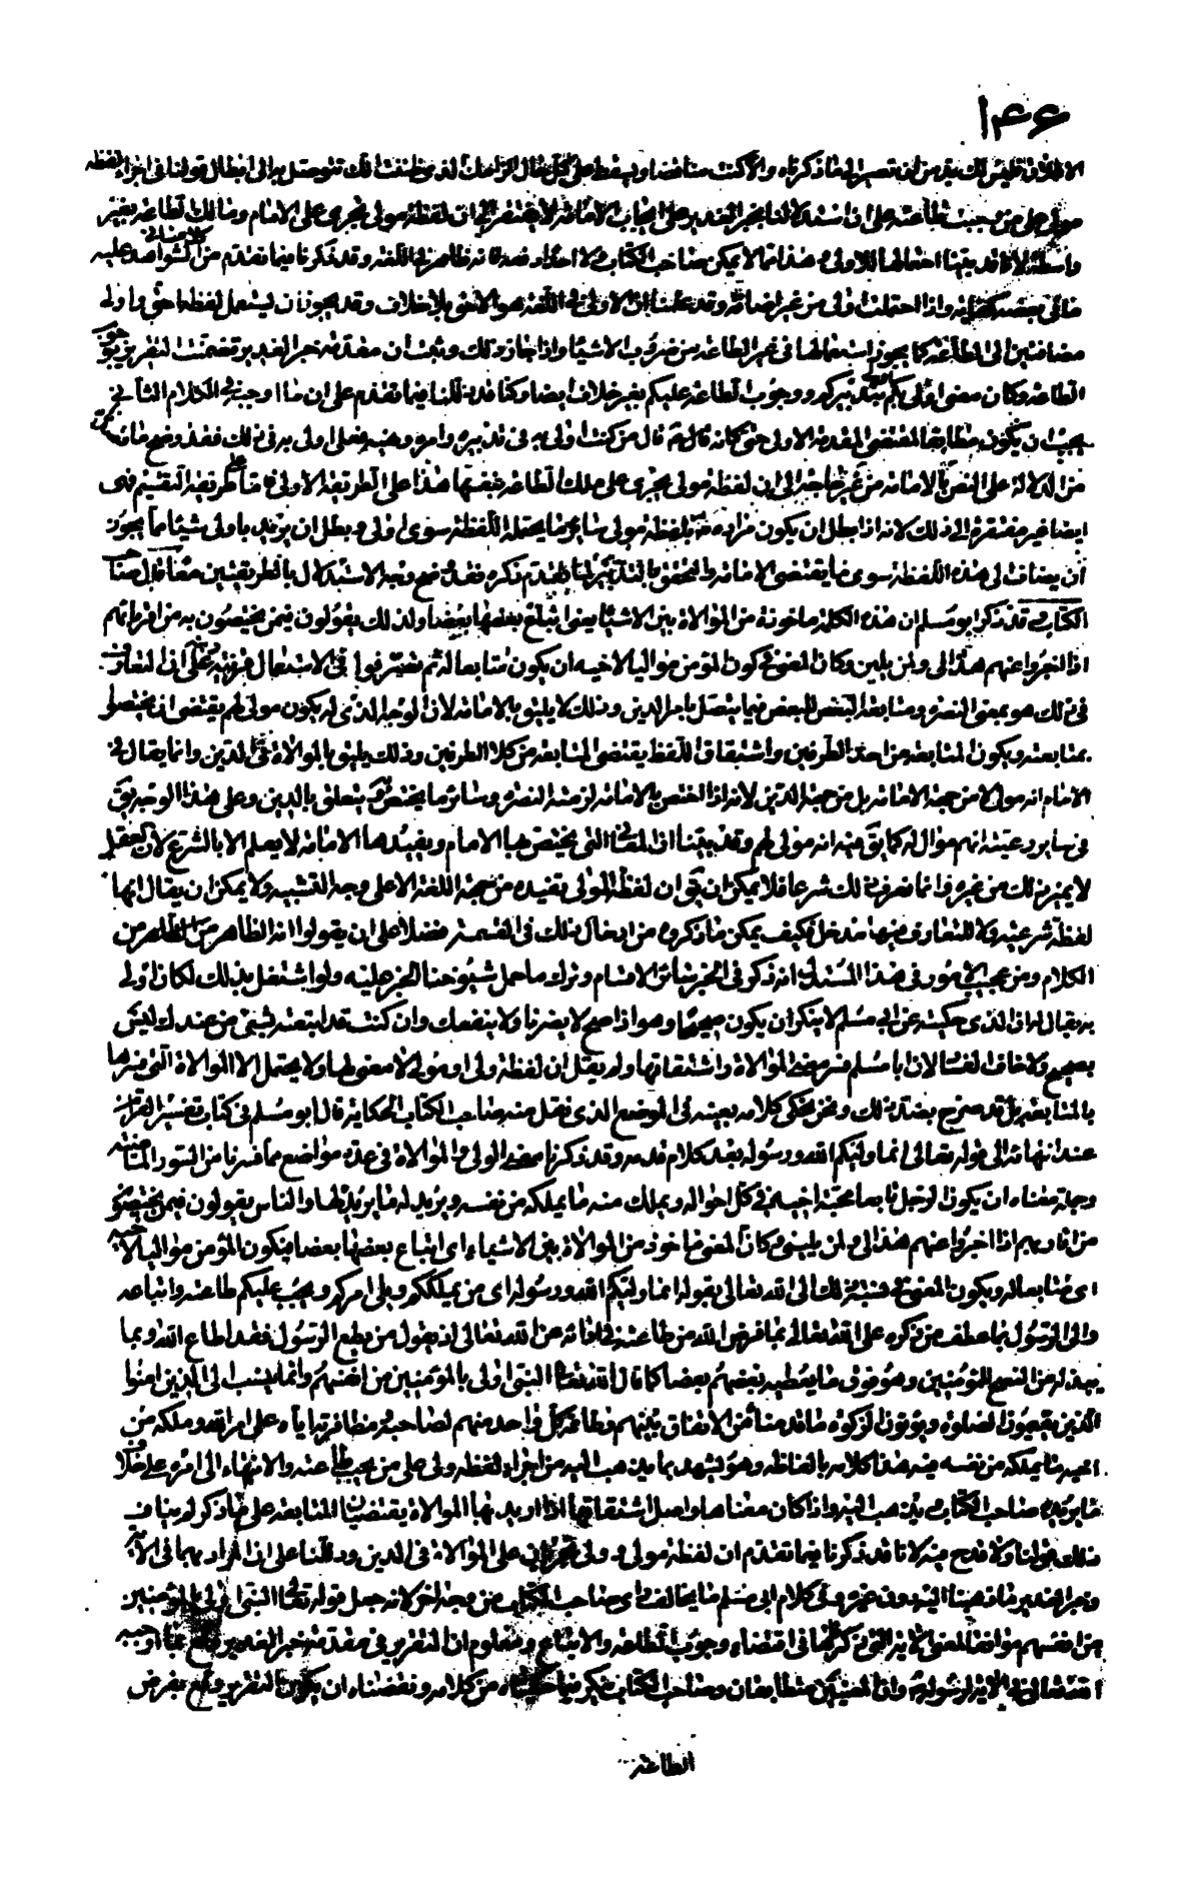 ١٤٦
الاطلاق فليس لك بد من ان تصير الى ما ذكرناه والا كنت مناقضا ويسقط على كل حال الزامك الذى ظننت انك تتوصل به الى ابطال قولنا فى اجراء لفظة
مولى على من وجبت طاعته على ان استدلالنا بخبر الغدير على ايجاب الامامة لا يفتقر الى ان لفظة مولى تجرى على الامام ومالك الطاعة بغير
واسطة لانا قد بينا احتمالها للاولى وهذا مما لا يمكن صاحب الكتاب ولا احدا دفعه فانه ظاهر فى اللغة وقد ذكرنا فيما تقدم من كلامنا فى الشواهد عليه
ما فى بعضه كفاية واذا احتملت اولى من غير اضافة وقد علمنا ان الاولى فى اللغة هو الاحق بلا خلاف وقد يجوز ان يستعمل لفظة احق واولى
مضافتين الى الطاعة كما يجوز استعمالها فى غير الطاعة من ضروب الاشياء واذا جاز ذلك وثبت ان مقدمة خبر الغدير تضمنت التقرير بوجوب
الطاعة وكان معنى اولى بكم اولى بتدبيركم ووجوب الطاعة عليكم بغير خلاف ايضا وكنا قد دللنا فيما تقدم على ان ما اوجب فى الكلام الثانى
يجب ان يكون مطابقا لمقتضى المقدمة الاولى حتى كانه قال من كنت اولى به فى تدبيره وامره ونهيه فعلى اولى به فى ذلك فقد وضح ما
من الدلالة على النص بالامامة من غير حاجة الى ان لفظة مولى تجرى على ملك الطاعة بنفسها هذا على الطريقة الاولى فاما على طريقة التقسيم فهى
ايضا غير مفتقرة الى ذلك لانه اذا بطل ان يكون مراده بلفظة مولى سائر ما يحتمله اللفظة سوى اولى وبطل ان يريد باولى شيئا مما يجوز
ان يضاف الى هذه اللفظة سوى ما يقتضى الامامة والتحقق بالتدبير لما تقدم ذكره فقد وضح وجه الاستدلال بالطريقتين معا قال صاحب
الكتاب وقد ذكر ابو مسلم ان هذه الكلمة ماخوذة من الموالاة بين الاشياء بمعنى اتباع بعضها بعضا ولذلك يقولون فيمن يختصون به من اقربائهم
اذا اخبروا عنهم هذا الى ومن يلينى وكان المعنى فى كون المؤمن مواليا لاخيه ان يكون متابعا له ثم تعتبر فى الاستعمال
فى ذلك هو بمعنى النصرة ومتابعة البعض للبعض فيما يتصل بامر الدين وذلك لا يليق بالامامة لان الوجه الذى له يكون مولى لهم يقتضى ان يختص
بمتابعته ويكون المتابعة من احد الطرفين واشتقاق اللفظ يقتضى المتابعة من كلا الطرفين وذلك يليق بالموالاة فى الدين وانما يقال فى
الامام انه مولى لا من جهة الامامة بل من جهة الدين لانه اذا اختص بالامامة لزمته النصرة وسائر ما يختص يتعلق بالدين وعلى هذا الوجه يق
فى سائر رعيته انهم موال له كما يق فيه انه مولى لهم وقد بينا ان المعانى التى يختص بها الامام ويفيدها الامامة لا يعلم الا بالشرع لان العقل
لا يميز ذلك من غيره وانما نعرف ذلك شرعا فلا يمكن ان يق ان لفظة المولى تفيده من جهة اللغة الا على وجه التشبيه ولا يمكن ان يقال انها
لفظة شرعية ولا للتعارف فيها مدخل فكيف يمكن ما ذكروه من ادخال ذلك فى القسمة فضلا على ان يقولوا انه الظاهر من
الكلام ومن عجيب الامور فى هذا المستدل انه ذكر فى الخبر سائر الاقسام وترك ما حمل شيوخنا الخبر عليه ولو اشتغل بذلك لكان اولى
به يقال له اما الذى حكيته عن ابى مسلم لا ينكر ان يكون صحيحا وهو اذا صح لا يضرنا ولا ينفعك وان كنت قد اتبعته بشىء من عندك ليس
بصحيح ولا خاف الفساد لان ابا مسلم فسر معنى الموالاة واشتقاقها ولم يقل ان لفظة ولى او مولى لا معنى لها ولا يحتمل الا الموالاة التى فسرها
بالمتابعة بل قد صرح بضد ذلك ونحن نحكى كلامه بعينه فى الموضع الذى نقل منه صاحب الكتاب الحكاية قال ابو مسلم فى كتاب تفسير القران
عند انتهائه الى قوله تعالى انما وليكم الله ورسوله بعد كلام قدمه وقد ذكرنا معنى الولى والموالاة فى عدة مواضع مما فسرنا من السور الماضية
وجملة معناه ان يكون الرجل تابعا محبة اخيه فى كل احواله ويملك منه ما يملكه من نفسه ويريد له ما يريد لها والناس يقولون فيمن يختصون
من اقاربهم اذا اخبروا عنهم هذا الى ومن يلينى وكان المعنى ماخوذ من الموالاة بين الاشياء اى اتباع بعضها بعضا فيكون المؤمن مواليا لاخيه
اى متابعا له ويكون المعنى فى نسبة ذلك الى الله تعالى بقوله انما وليكم الله ورسوله اى من يملككم ويلى امركم ويجب عليكم طاعته واتباعه
والى الرسول بما عطف من ذكره على الله تعالى بما فرض الله من طاعته فى ادائه عن الله تعالى اذ يقول من يطع الرسول فقد اطاع الله وبما
يبذله من النصح للمؤمنين وهو فوق ما يعطيه بعضهم بعضا كما قال الله تعالى النبى اولى بالمؤمنين من انفسهم وانما ينسب الى الذين امنوا
الذين يقيمون الصلوة ويؤتون الزكوة ما قدمنا من الاتفاق بينهم وطاعة كل واحد منهم لصاحبه ومظافرته اياه على امر الله وملكه من
اخيه ما يملكه من نفسه فيه هذا كلامه بالفاظه وهو يشهد بما يذهب اليه من اجراء لفظة ولى على من يجب طاعته والانتهاء الى امره على خلاف
ما يريده صاحب الكتاب ويذهب اليه واذا كان معناها واصل اشتقاقها اذا اريد بها الموالاة يقتضيان المتابعة على ما ذكر لم يناف
ذلك قولنا ولا قدح فيه لانا قد ذكرنا فيما تقدم ان لفظة مولى وولى تجريان على الموالاة فى الدين ودللنا على ان المراد بهما فى الاية
وخبر الغدير ما ذهبنا اليه دون غيره وفى كلام ابى مسلم ما يخالف راى صاحب الكتاب من وجه اخر لانه جعل قوله تعالى النبى اولى بالمؤمنين
من انفسهم موافقا لمعنى الاية التى ذكرناها فى اقتضاء وجوب الطاعة والاتباع ومعلوم ان التقرير فى مقدمة خبر الغدير وقع بما اوجبه
الله تعالى فى الاية لرسوله وان المعنيين متطابقان وصاحب الكتاب ينكر فيما حكيناه من كلامه ونقضناه ان يكون التقرير وقع بفرض
الطاعة